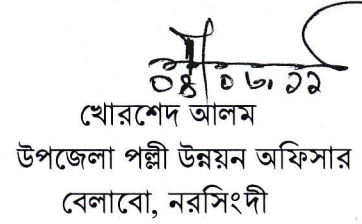 খোরশেদ আলম
উপজেলা পল্লী উন্নয়ন অফিসার
বেলাবো, নরসিংদী